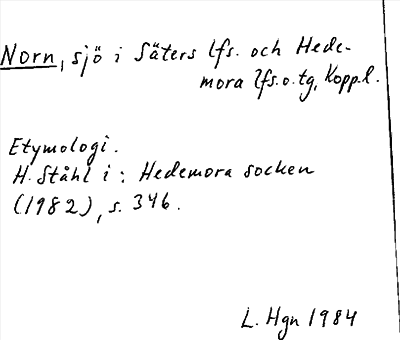 Norn, sjö i Säters lfs. och Hede-
mora lfs. o. tg, Kopp.l.
Etymologi.
H. Ståhl i: Hedemora socken
(1982), s. 346.
L. Hgn 1984